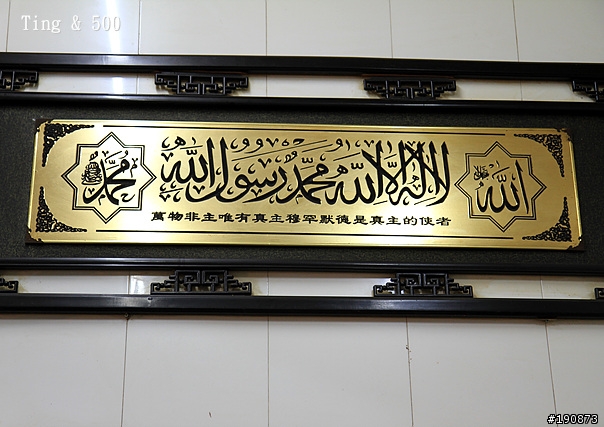 Ting & 500
الله جل جلاله
لا إله إلا الله محمد رسول الله
محمد
萬物非主唯有真主穆罕默德是真主的使者
#190873